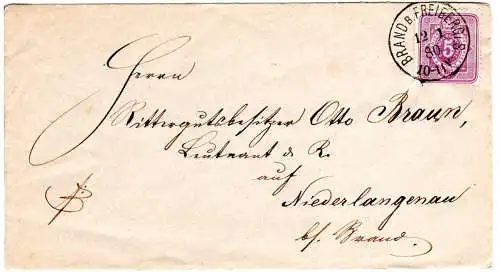 BRAND B. FREIBERG I. S.
12 1
80
10-11
5
Herrn
Rittergutsbesitzer Otto Braun,
Leutnant d. R.
auf
Niederlangenau
bs. Brand.